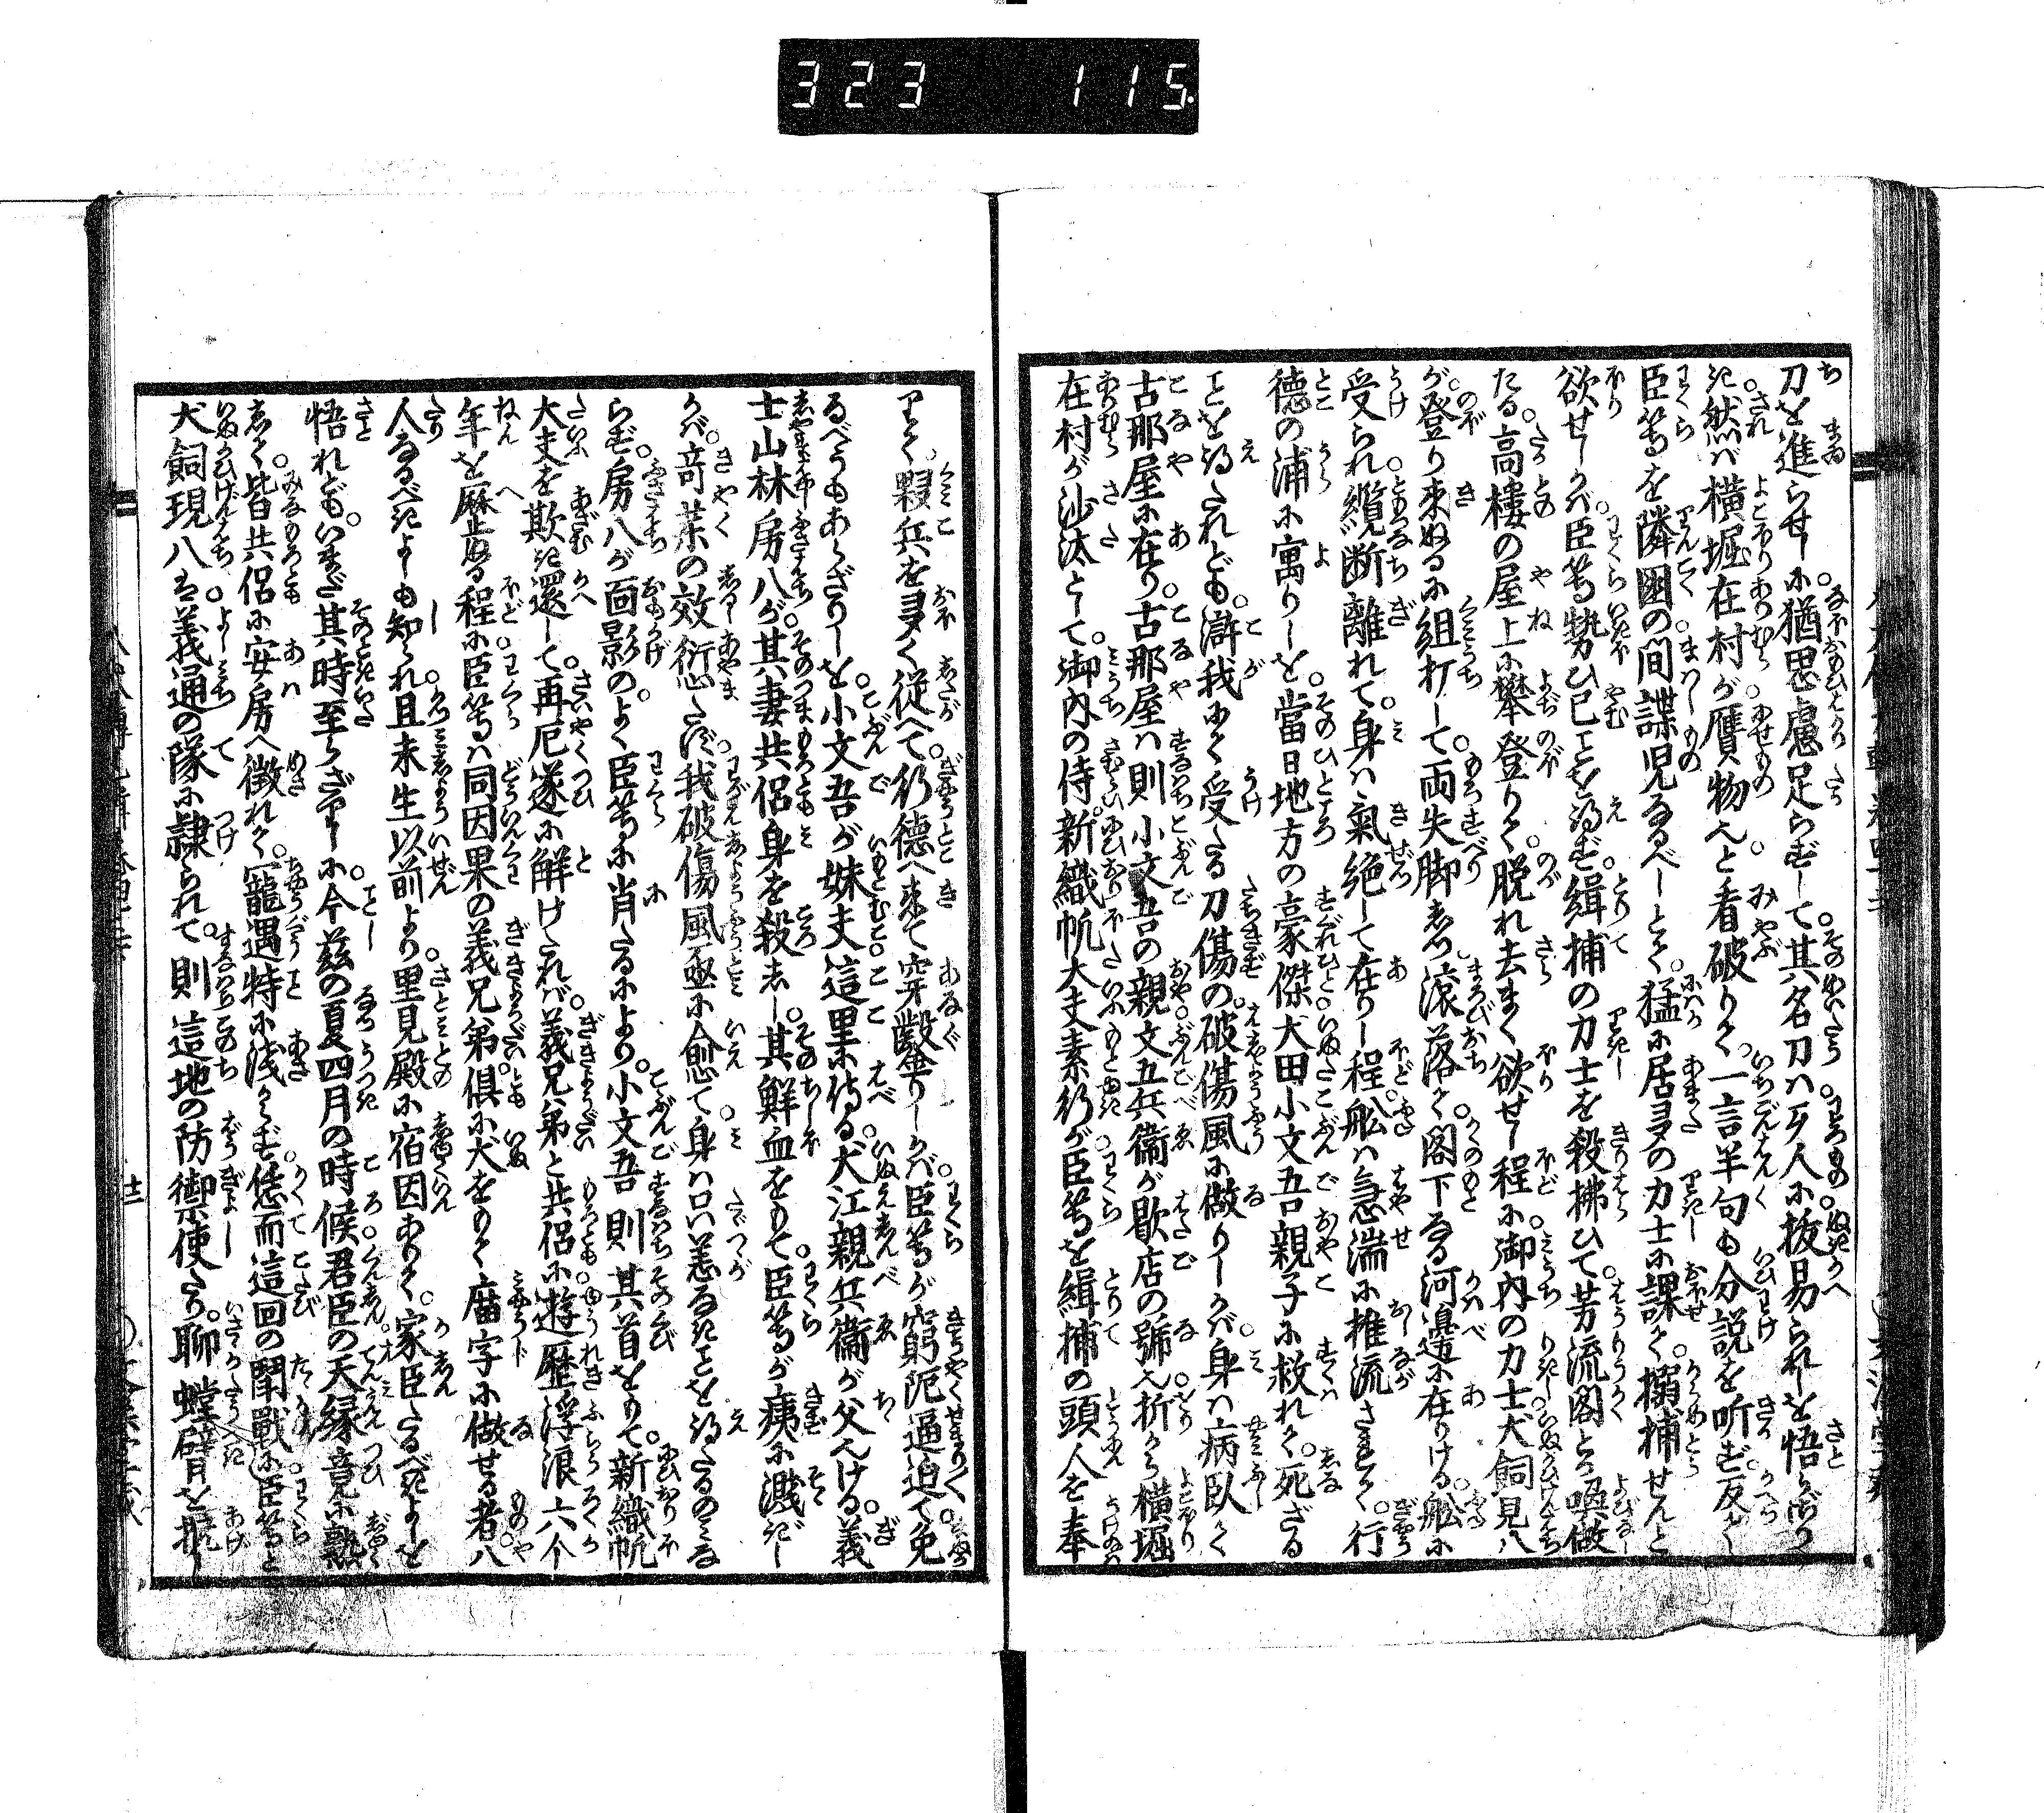 323 115
刀を進らせしに猶思慮足らずして其名刀ハ歹人に抜易られしを悟らざり
き然バ横堀在村が贋物也と看破りて一言半句も分説を听ず反て
臣等を隣國の間諜児なるべしとて猛に居多の力士に課て搦捕せんと
欲せしかバ臣等勢ひ已ことを得ず緝捕の力士を殺拂ひて芳流閣とか喚做
たる高樓の屋上に攀登りて脱れ去まく欲せし程に御内の力士犬飼見八
が登り来ぬるに組打して両失脚しつ滾落て閣下なる河邉に在りける舩に
受られ纜断離れて身ハ氣絶して在りし程舩ハ急湍に推流されて行
徳の浦に寓りしを當日地方の豪傑犬田小文吾親子に救れて死ざる
ことを得たれども滸我にて受たる刀傷の破傷風に做りしかバ身ハ病臥て
古那屋に在り古那屋ハ則小文吾の親文五兵衞が歇店の號也折から横堀
在村が沙汰として御内の侍新織帆大夫素行が臣等を緝捕の頭人を奉
りて夥兵を多く従へて行徳へ来て穿鑿りしかバ臣等が窮阨逼迫て免
るべうもあらざりしを小文吾が妹夫這里に得る犬江親兵衞が父也ける義
士山林房八が其妻共侶身を殺し其鮮血をもて臣等が痍に濺ぎし
かバ奇茶の效衍たず我破傷風亟に愈て身ハ恙なきことを得たるのミな
らず房八が面影のよく臣等に肖たるにより小文吾則其首をもて新織帆
大夫を欺き還して再厄遂に解けたれバ義兄弟と共侶に遊歴浮浪六个
年を歴ぬる程に臣等ハ同因果の義兄弟倶に犬をもて庿字に做せる者八
人なるべきよしも知られ且未生以前より里見殿に宿因ありて家臣たるべきよしを
悟れどもいまだ其時至らざりしに今茲の夏四月の時候君臣の天縁竟に熟
しく皆共侶に安房へ徴れて寵遇特に浅からず恁而這回の閗戰に臣等と
犬飼現八ハ義通の隊に隷られて則這地の防禦使たり聊螳臂を抗し